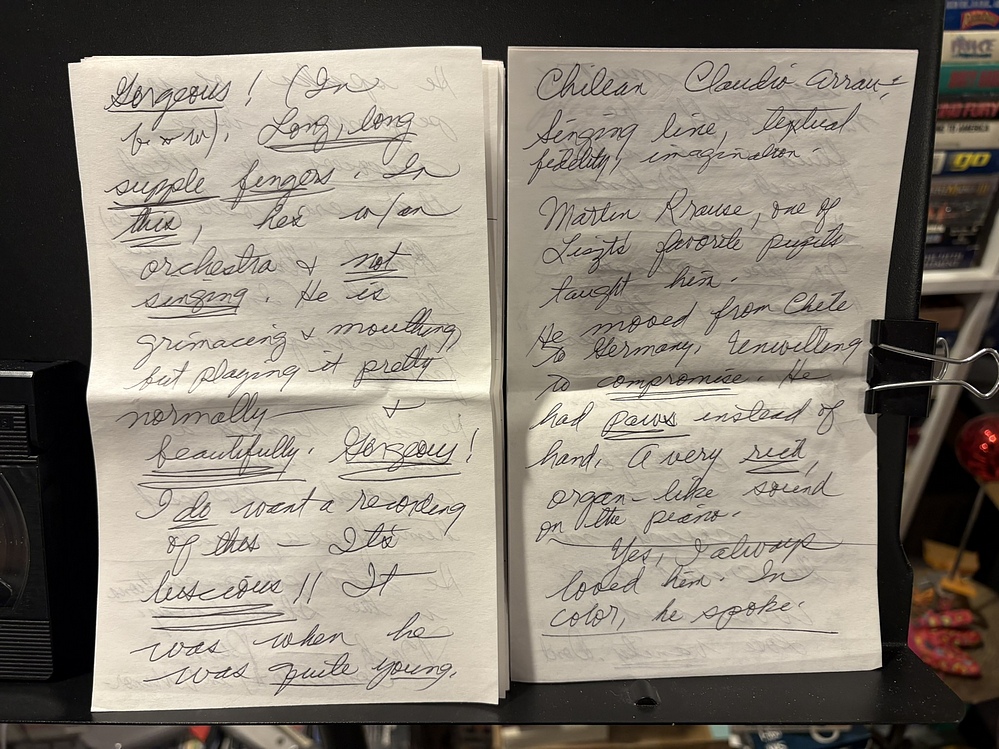 Gorgeous! (In
b & w). Long, long
supple fingers. In
this, he's w/an
orchestra & not
singing. He is
grimacing & mouthing
but playing it pretty
normally — &
beautifully. Gorgeous!
I do want a recording
of this — It's
lusscious!! It
was when he
was quite young.
Chilean Claudio Arrau -
Singing line, textual
fidelity, imagination.
Martin Krause, one of
Liszt's favorite pupils
taught him.
He moved from Chile
to Germany. Unwilling
to compromise. He
had paws instead of
hand. A very rich,
organ-like sound
on the piano.
Yes, I always
loved him. In
color, he spoke.
go